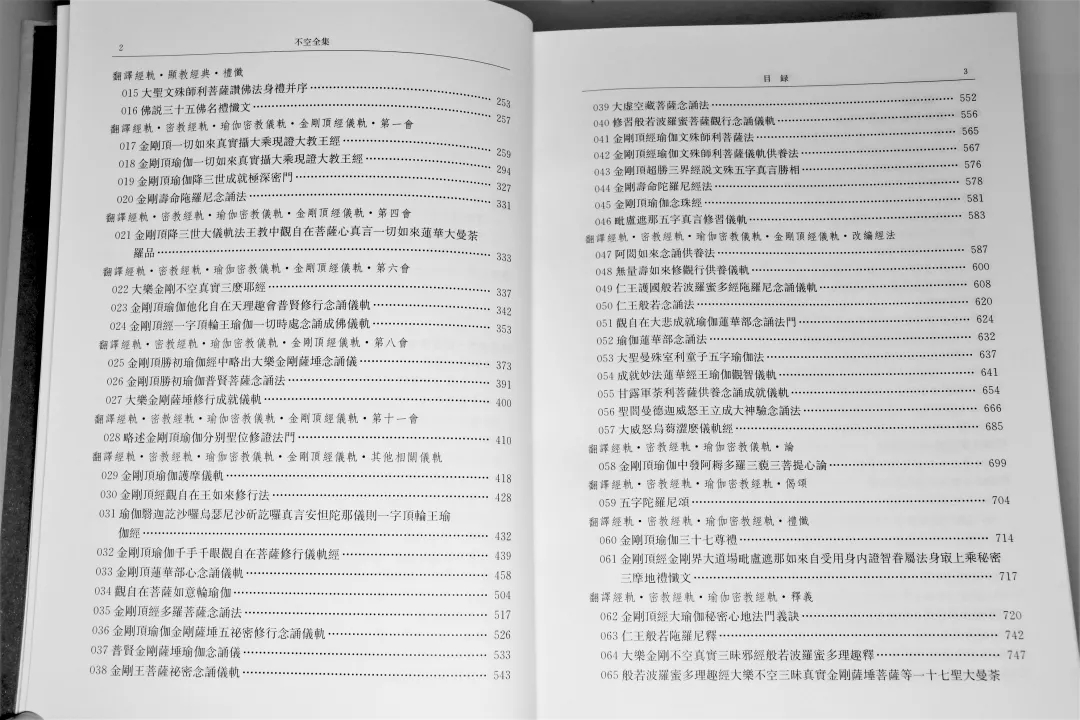 2
不空全集
翻譯經軌・顯教經典・禮懺
015 大聖文殊師利菩薩讚佛法身禮并序 253
016 佛説三十五佛名禮懺文 257
翻譯經軌・密教經軌・瑜伽密教儀軌・金剛頂經儀軌・第一會
017 金剛頂一切如來真實攝大乘現證大教王經 259
018 金剛頂瑜伽一切如來真實攝大乘現證大教王經 294
019 金剛頂瑜伽降三世成就極深密門 327
020 金剛壽命陁羅尼念誦法 331
翻譯經軌・密教經軌・瑜伽密教儀軌・金剛頂經儀軌・第四會
021 金剛頂降三世大儀軌法王教中觀自在菩薩心真言一切如來蓮華大曼荼
羅品 333
翻譯經軌・密教經軌・瑜伽密教儀軌・金剛頂經儀軌・第六會
022 大樂金剛不空真實三麽耶經 337
023 金剛頂瑜伽他化自在天理趣會普賢修行念誦儀軌 342
024 金剛頂經一字頂輪王瑜伽一切時處念誦成佛儀軌 353
翻譯經軌・密教經軌・瑜伽密教儀軌・金剛頂經儀軌・第八會
025 金剛頂勝初瑜伽經中略出大樂金剛薩埵念誦儀 373
026 金剛頂勝初瑜伽普賢菩薩念誦法 391
027 大樂金剛薩埵修行成就儀軌 400
翻譯經軌・密教經軌・瑜伽密教儀軌・金剛頂經儀軌・第十一會
028 略述金剛頂瑜伽分别聖位修證法門 410
翻譯經軌・密教經軌・瑜伽密教儀軌・金剛頂經儀軌・其他相關儀軌
029 金剛頂瑜伽護摩儀軌 418
030 金剛頂經觀自在王如來修行法 428
031 瑜伽翳迦訖沙囉烏瑟尼沙斫訖囉真言安怛陀那儀則一字頂輪王瑜
伽經 432
032 金剛頂瑜伽千手千眼觀自在菩薩修行儀軌經 439
033 金剛頂蓮華部心念誦儀軌 458
034 觀自在菩薩如意輪瑜伽 504
035 金剛頂經多羅菩薩念誦法 517
036 金剛頂瑜伽金剛薩埵五祕密修行念誦儀軌 526
037 普賢金剛薩埵瑜伽念誦儀 533
038 金剛王菩薩祕密念誦儀軌 543
目 録
3
039 大虚空藏菩薩念誦法 552
040 修習般若波羅蜜菩薩觀行念誦儀軌 556
041 金剛頂經瑜伽文殊師利菩薩法 565
042 金剛頂經瑜伽文殊師利菩薩儀軌供養法 567
043 金剛頂超勝三界經説文殊五字真言勝相 576
044 金剛壽命陀羅尼經法 578
045 金剛頂瑜伽念珠經 581
046 毗盧遮那五字真言修習儀軌 583
翻譯經軌・密教經軌・瑜伽密教儀軌・金剛頂經儀軌・改編經法
047 阿閦如來念誦供養法 587
048 無量壽如來修觀行供養儀軌 600
049 仁王護國般若波羅蜜多經陁羅尼念誦儀軌 608
050 仁王般若念誦法 620
051 觀自在大悲成就瑜伽蓮華部念誦法門 624
052 瑜伽蓮華部念誦法 632
053 大聖曼殊室利童子五字瑜伽法 637
054 成就妙法蓮華經王瑜伽觀智儀軌 641
055 甘露軍荼利菩薩供養念誦成就儀軌 654
056 聖閻曼德迦威怒王立成大神驗念誦法 666
057 大威怒烏蒭澀麽儀軌經 685
翻譯經軌・密教經軌・瑜伽密教儀軌・論
058 金剛頂瑜伽中發阿耨多羅三藐三菩提心論 699
翻譯經軌・密教經軌・瑜伽密教儀軌・偈頌
059 五字陀羅尼頌 704
翻譯經軌・密教經軌・瑜伽密教儀軌・禮懺
060 金剛頂瑜伽三十七尊禮 714
061 金剛頂經金剛界大道場毗盧遮那如來自受用身内證智眷屬法身㝡上乘秘密
三摩地禮懺文 717
翻譯經軌・密教經軌・瑜伽密教儀軌・釋義
062 金剛頂經大瑜伽秘密心地法門義訣 720
063 仁王般若陁羅尼釋 742
064 大樂金剛不空真實三昧邪經般若波羅蜜多理趣釋 747
065 般若波羅蜜多理趣經大樂不空三昧真實金剛薩埵菩薩等一十七聖大曼荼